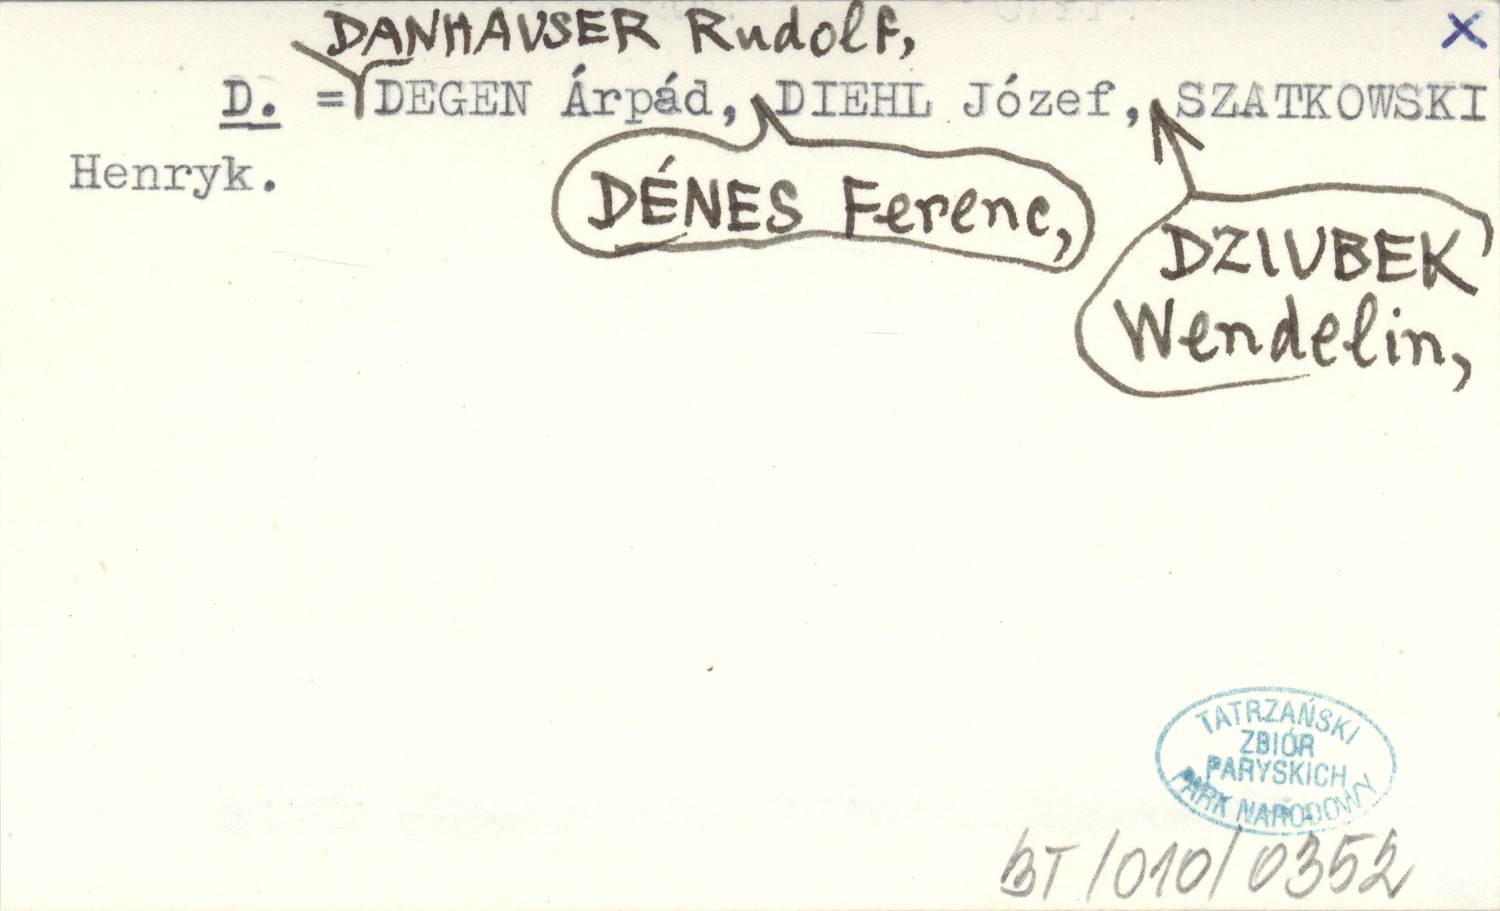 DANHAUSER Rudolf,
×
D. = DEGEN Árpád, DIEHL Józef, SZATKOWSKI
Henryk.
DÉNES Ferenc,
DZIUBEK
Wendelin,
TATRZAŃSKI
ZBIÓR
PARYSKICH
PARK NARODOWY
BT/010/0352